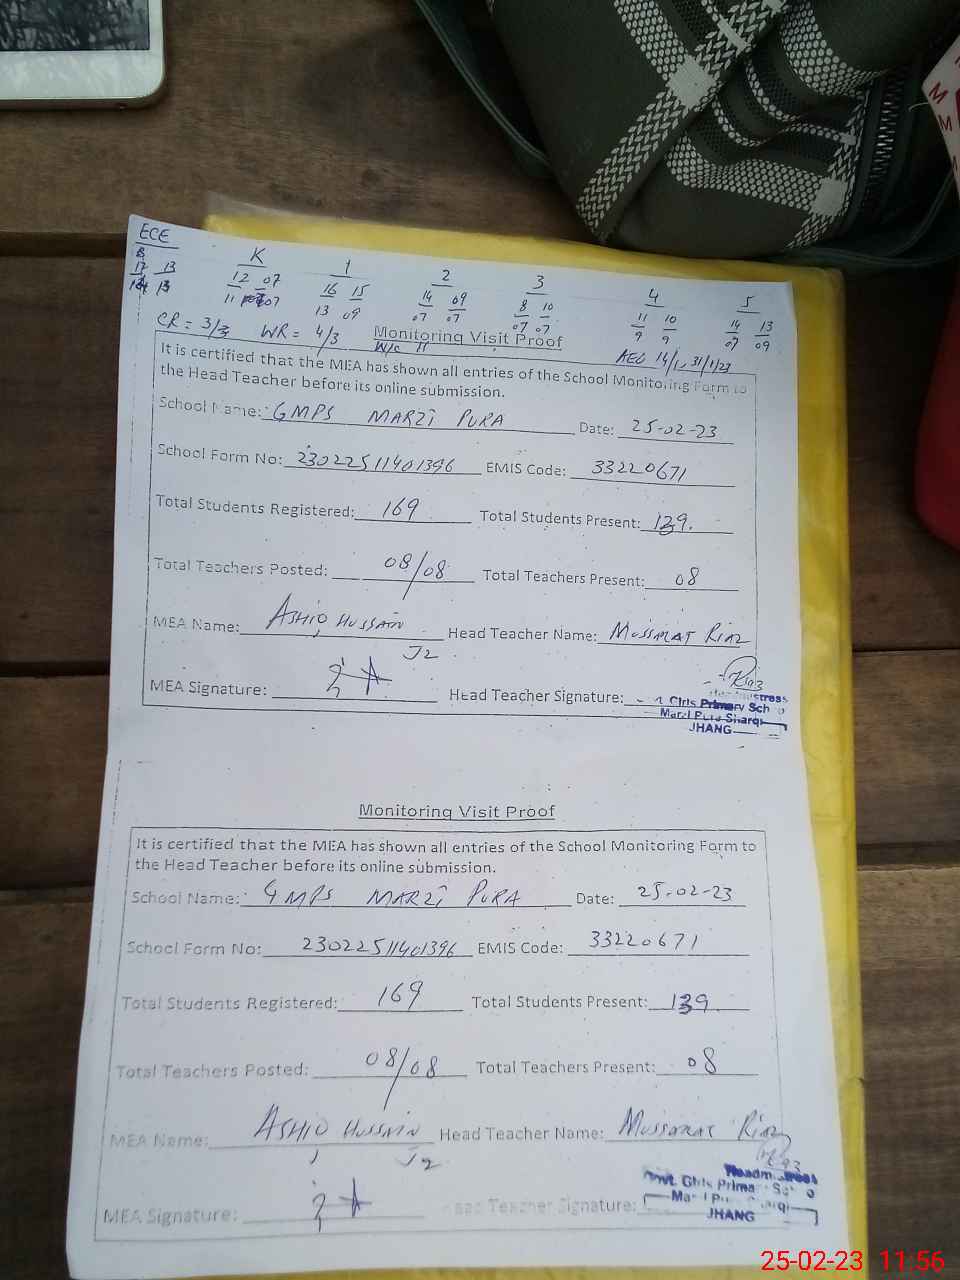 ECE K 1 2 3 4 5
13 12 07 16 15 14 09 8 10 11 10 14 13
13 11 07 13 09 07 07 07 07 9 9 07 09
CR = 3/3 WR = 4/3 Monitoring Visit Proof
W/C 11 AEO 14/1, 31/1/23
It is certified that the MEA has shown all entries of the School Monitoring Form to
the Head Teacher before its online submission.
School Name: GMPS MARZI PURA Date: 25-02-23
School Form No: 23022511401396 EMIS Code: 33220671
Total Students Registered: 169 Total Students Present: 139.
Total Teachers Posted: 08/08 Total Teachers Present: 08
MEA Name: ASHIQ HUSSAIN Head Teacher Name: MUSSARAT RIAZ
J2
MEA Signature: Head Teacher Signature:
Headmistress
Girls Primary School
Marzi Pura Sharqi
JHANG
Monitoring Visit Proof
It is certified that the MEA has shown all entries of the School Monitoring Form to
the Head Teacher before its online submission.
School Name: GMPS MARZI PURA Date: 25-02-23
School Form No: 23022511401396 EMIS Code: 33220671
Total Students Registered: 169 Total Students Present: 139
Total Teachers Posted: 08/08 Total Teachers Present: 08
MEA Name: ASHIQ HUSSAIN Head Teacher Name: Mussarat Riaz
J2
MEA Signature: Head Teacher Signature:
Headmistress
Govt. Girls Primary School
Marzi Pura Sharqi
JHANG
25-02-23 11:56